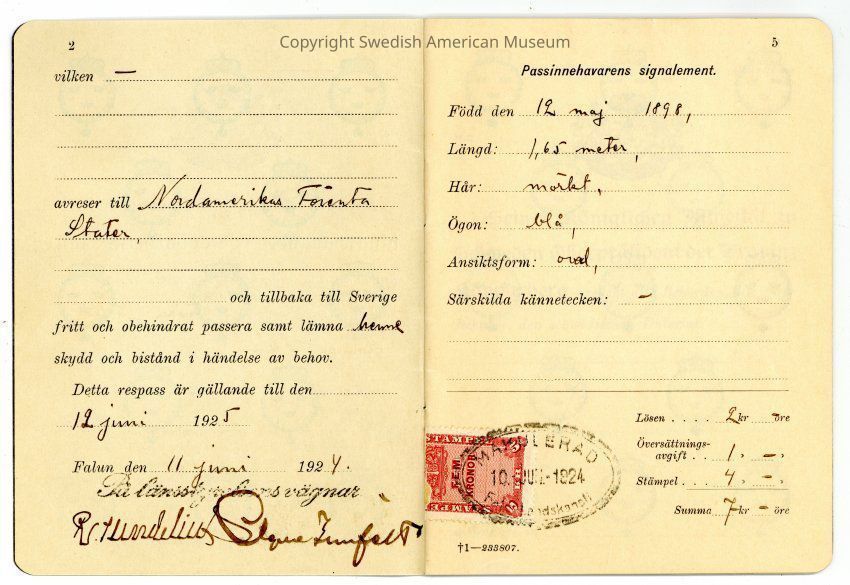 Copyright Swedish American Museum
2
vilken —
avreser till Nordamerikas Förenta
Stater,
och tillbaka till Sverige
fritt och obehindrat passera samt lämna henne
skydd och bistånd i händelse av behov.
Detta respass är gällande till den
12 juni 1925
Falun den 11 juni 1924.
På länsstyrelsens vägnar
5
Passinnehavarens signalement.
Född den 12 maj 1898,
Längd: 1,65 meter,
Hår: mörkt,
Ögon: blå,
Ansiktsform: oval,
Särskilda kännetecken: –
Lösen . . . . 2 kr – öre
Översättnings-
avgift . . 1 „ – „
Stämpel . . 4 „ – „
Summa 7 kr – öre
STAMPEL
FEM
KRONOR
MAKULERAD
10. JUNI. 1924
†1—233807.